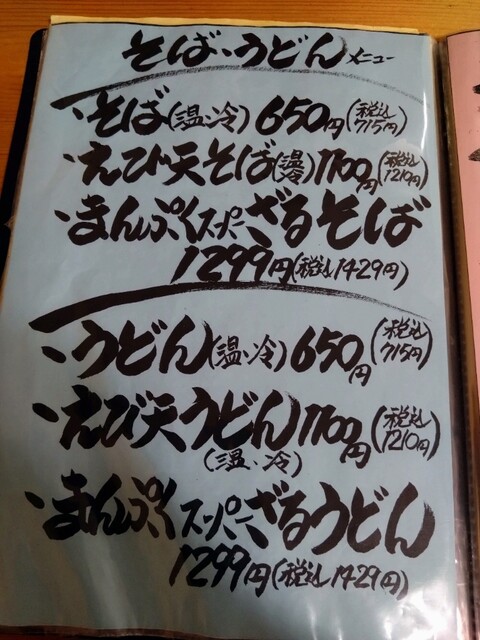 そば、うどんメニュー
・そば(温・冷)650円(税込715円)
・えび天そば(温冷)1100円(税込1210円)
・まんぷくスーパーざるそば
1299円(税込1429円)
・うどん(温・冷)650円(税込715円)
・えび天うどん1100円(税込1210円)
(温、冷)
・まんぷくスーパーざるうどん
1299円(税込1429円)